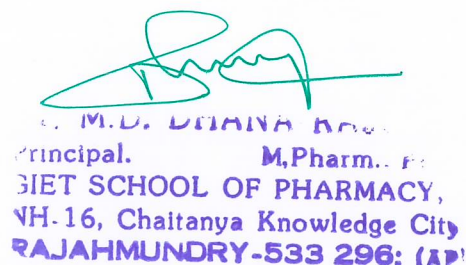 M.D. DHANA
Principal. M,Pharm..
GIET SCHOOL OF PHARMACY,
NH-16, Chaitanya Knowledge City
RAJAHMUNDRY-533 296: (AP)